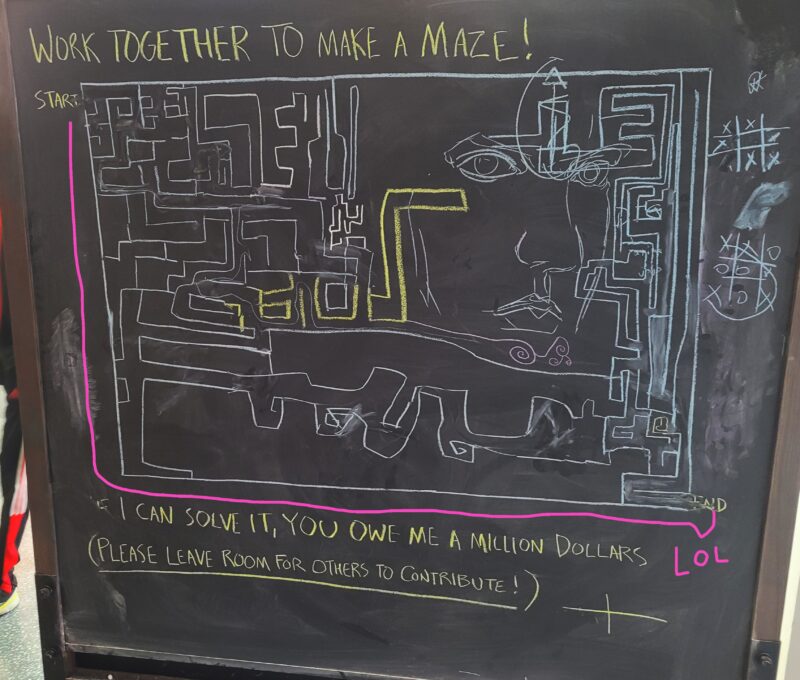 WORK TOGETHER TO MAKE A MAZE!
START
END
IF I CAN SOLVE IT, YOU OWE ME A MILLION DOLLARS
LOL
(PLEASE LEAVE ROOM FOR OTHERS TO CONTRIBUTE!)